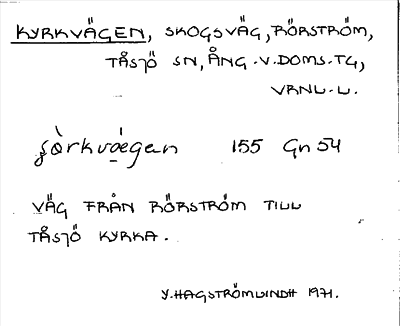 KYRKVÄGEN, SKOGSVÄG, RÖRSTRÖM,
TÅSJÖ SN, ÅNG. V. DOMS. TG,
VRNL. L.
155 Gn 54
VÄG FRÅN RÖRSTRÖM TILL
TÅSJÖ KYRKA.
Y. HAGSTRÖMLINDH 1971.